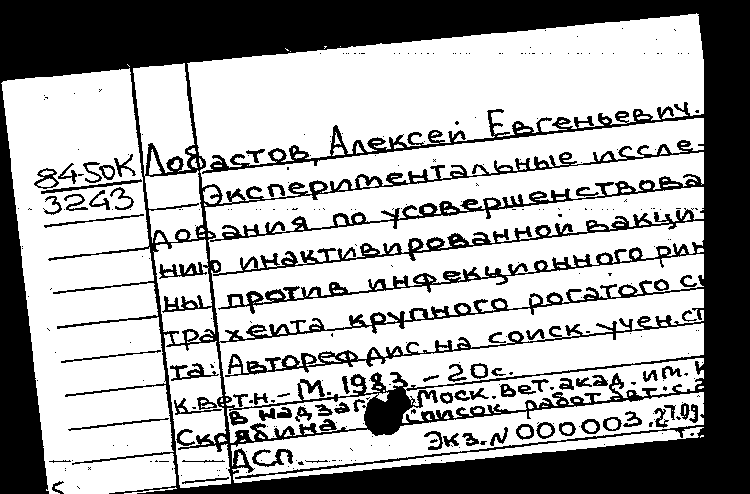 Лобастов, Алексей Евгеньевич.
84-50К
3243
Экспериментальные иссле-
дования по усовершенствова
нию инактивированной вакци-
ны против инфекционного рин
трахеита крупного рогатого с
та: Автореф дис. на соиск. учен. ст
к. вет. н. - М., 1983. - 20 с.
В надзаг Моск. вет. акад. им. К
Скрябина. Список работ авт.: с. 2
ДСП. Экз. N 000003. 27.09.